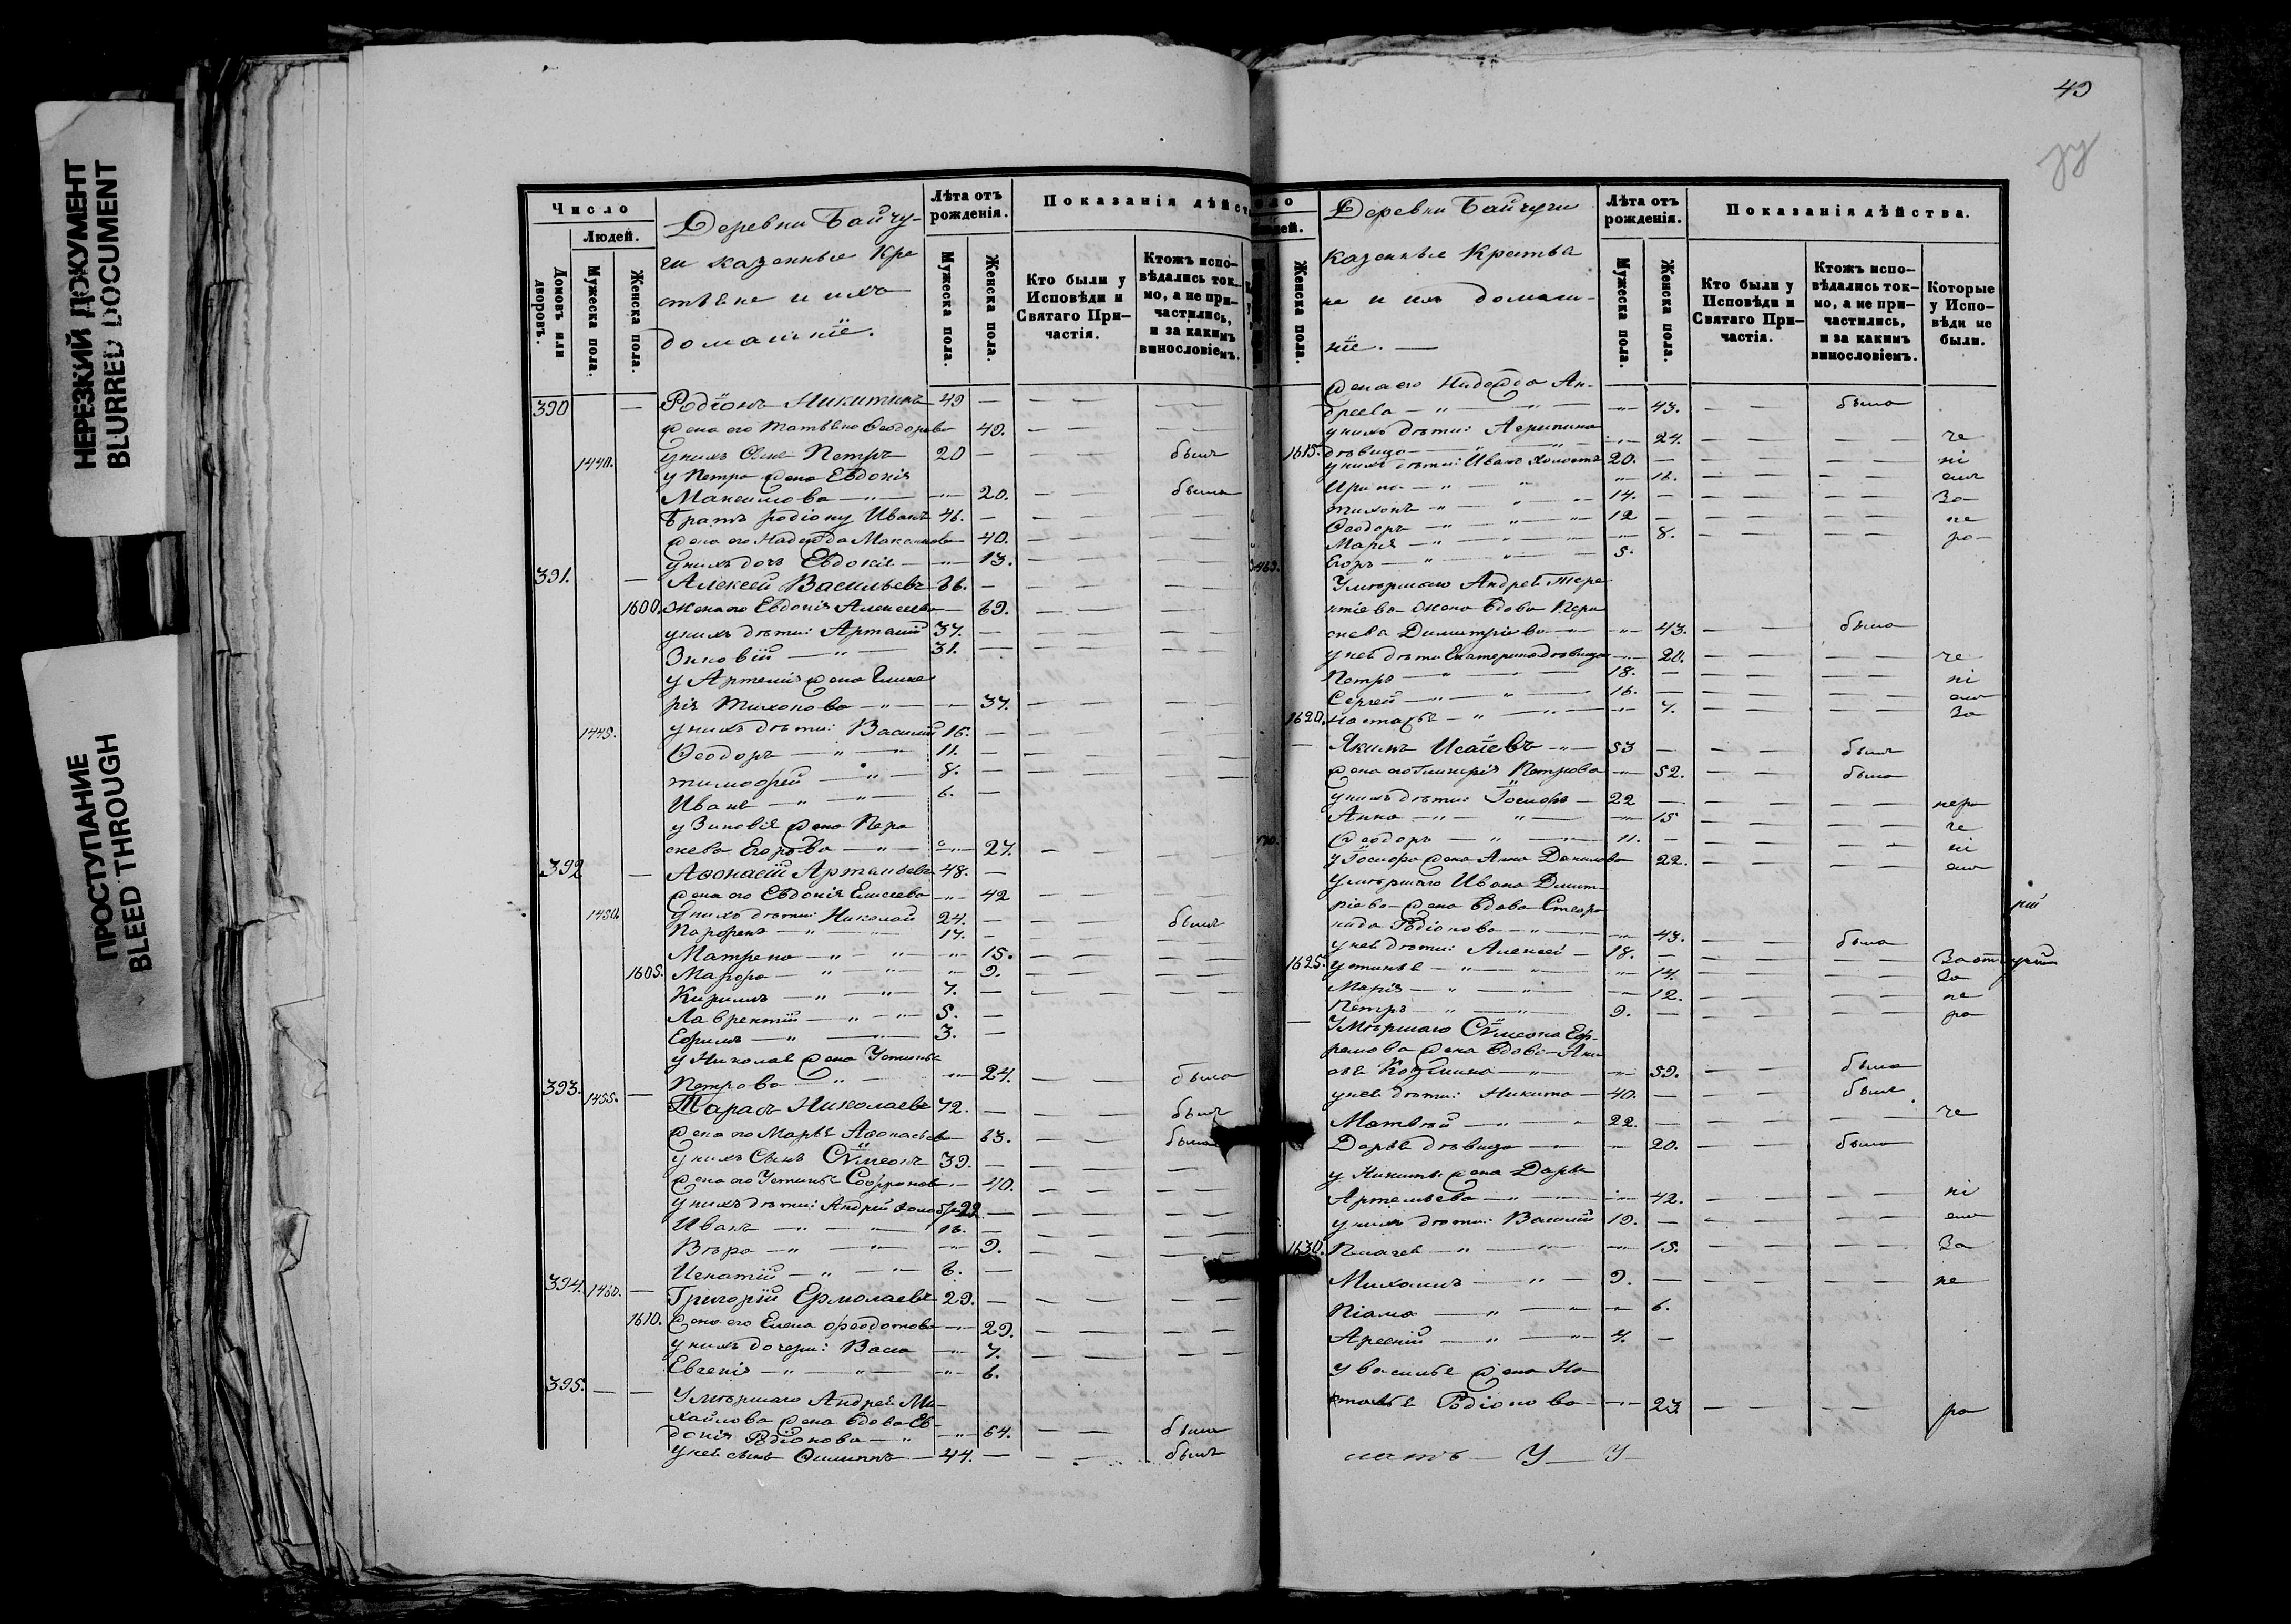 НЕРЕЗКИЙ ДОКУМЕНТ
BLURRED DOCUMENT
ПРОСТУПАНИЕ
BLEED THROUGH
Число
Людей.
Домовъ или дворовъ.
Мужеска пола.
Женска пола.
Деревни Байчу-
ги казенные Кре
стьяне и ихъ
домашніе.
Лѣта отъ рожденія.
Мужеска пола.
Женска пола.
Показанія дѣйст
Кто были у Исповѣди и Святаго При-
частія.
Ктожъ испо-
вѣдались ток-
мо, а не при-
частились,
и за какимъ
винословіемъ.
390 — Родіонъ Никитинъ 49 —
жена его Татьяна Ѳеодорова 49.
1440. у нихъ сынъ Петръ 20 — былъ
у Петра жена Евдокія
Максимова 20. была
Братъ Родіону Иванъ 46. —
жена его Надежда Максимова 40.
у нихъ дочь Евдокія 13.
391. — Алексей Васильевъ 66. —
1600. Жена его Евдокія Алексеева 69.
у нихъ дѣти: Артемій 37. —
Зиновій 31. —
у Артемія жена Глике
рія Тихонова 37.
1445. у нихъ дѣти: Василій 16. —
Ѳеодоръ 11. —
Тимофей 8. —
Иванъ 6. —
у Зиновія жена Пера
скева Егорова 27.
392 — Аѳонасій Артемьевъ 48. —
жена его Евдокія Елисеева 42
1450. у нихъ дѣти: Николай 24. — былъ
Парфенъ 17. —
Матрена 15.
1605. Марфа 9.
Кирилъ 7. —
Лаврентій 5. —
Ефимъ 3. —
у Николая жена Устинья
Петрова 24. была
393. 1455. — Тарасъ Николаевъ 72. — былъ
жена его Марья Аѳонасьева 63. была
у нихъ Сынъ Сѵмеонъ 39. —
жена его Устинья Софронова 40.
у нихъ дѣти: Андрей 22 —
Иванъ 16. —
Вѣра 9.
Игнатій 6. —
394. 1460. — Григорій Ермолаевъ 29. —
1610. Жена его Елена Ѳеодотова 29.
у нихъ дочери: Васса 7.
Евгенія 6.
395. — — Умершаго Андрея Ми-
хайлова жена вдова Ев-
докія Родіонова 64. была
у ней сынъ Филиппъ 44. — былъ
49
Женска пола.
Деревни Байчуги
казенные Крестья
не и ихъ домаш-
ніе. —
Лѣта отъ рожденія.
Мужеска пола.
Женска пола.
Показанія дѣйства.
Кто были у Исповѣди и Святаго При-
частія.
Ктожъ испо-
вѣдались ток-
мо, а не при-
частились,
и за какимъ
винословіемъ.
Которые у Испо-
вѣди не были.
жена его Надежда Ан-
дреева 43. была
у нихъ дѣти: Агрипина
1615. дѣвица 24. не
у нихъ дѣти: Иванъ холостъ 20. —
Ирина 16.
Тихонъ 14. — За
Ѳеодоръ 12 — не
Марія 8. ра
Егоръ 5.
Умершаго Андрея Тере
нтіева жена вдова Пера
скева Димитріева 43. была
у ней дѣти Екатерина дѣвица 20.
Петръ 18. —
Сергей 16. —
1620. Настасья 7. За
— Якимъ Исаіевъ 53 — былъ
жена его Гликерія Петрова 52. была
у нихъ дѣти: Іосифъ 22 —
Анна 15
Ѳеодоръ 11. —
у Іосифа жена Анна Данилова 22.
Умершаго Ивана Дмит-
ріева жена вдова Степа
нида Родіонова 43. была
у ней дѣти: Алексей 18. —
1625. Устинья 14. За
Марія 12. не
Петръ 9. — ра
— Умершаго Сѵмеона Еф-
ремова жена вдова
Козмина 59. была
у ней дѣти: Никита 40. — былъ
Матвей 22. —
Дарья дѣвица 20. была
у Никиты жена Дарья
Артемьева 42.
у нихъ дѣти: Василій 19. —
1630. Пелагея 15. За
Михаилъ 9. — не
Піама 6.
Арсеній 4. —
У Василья жена На
стасья Родіонова 23 ра